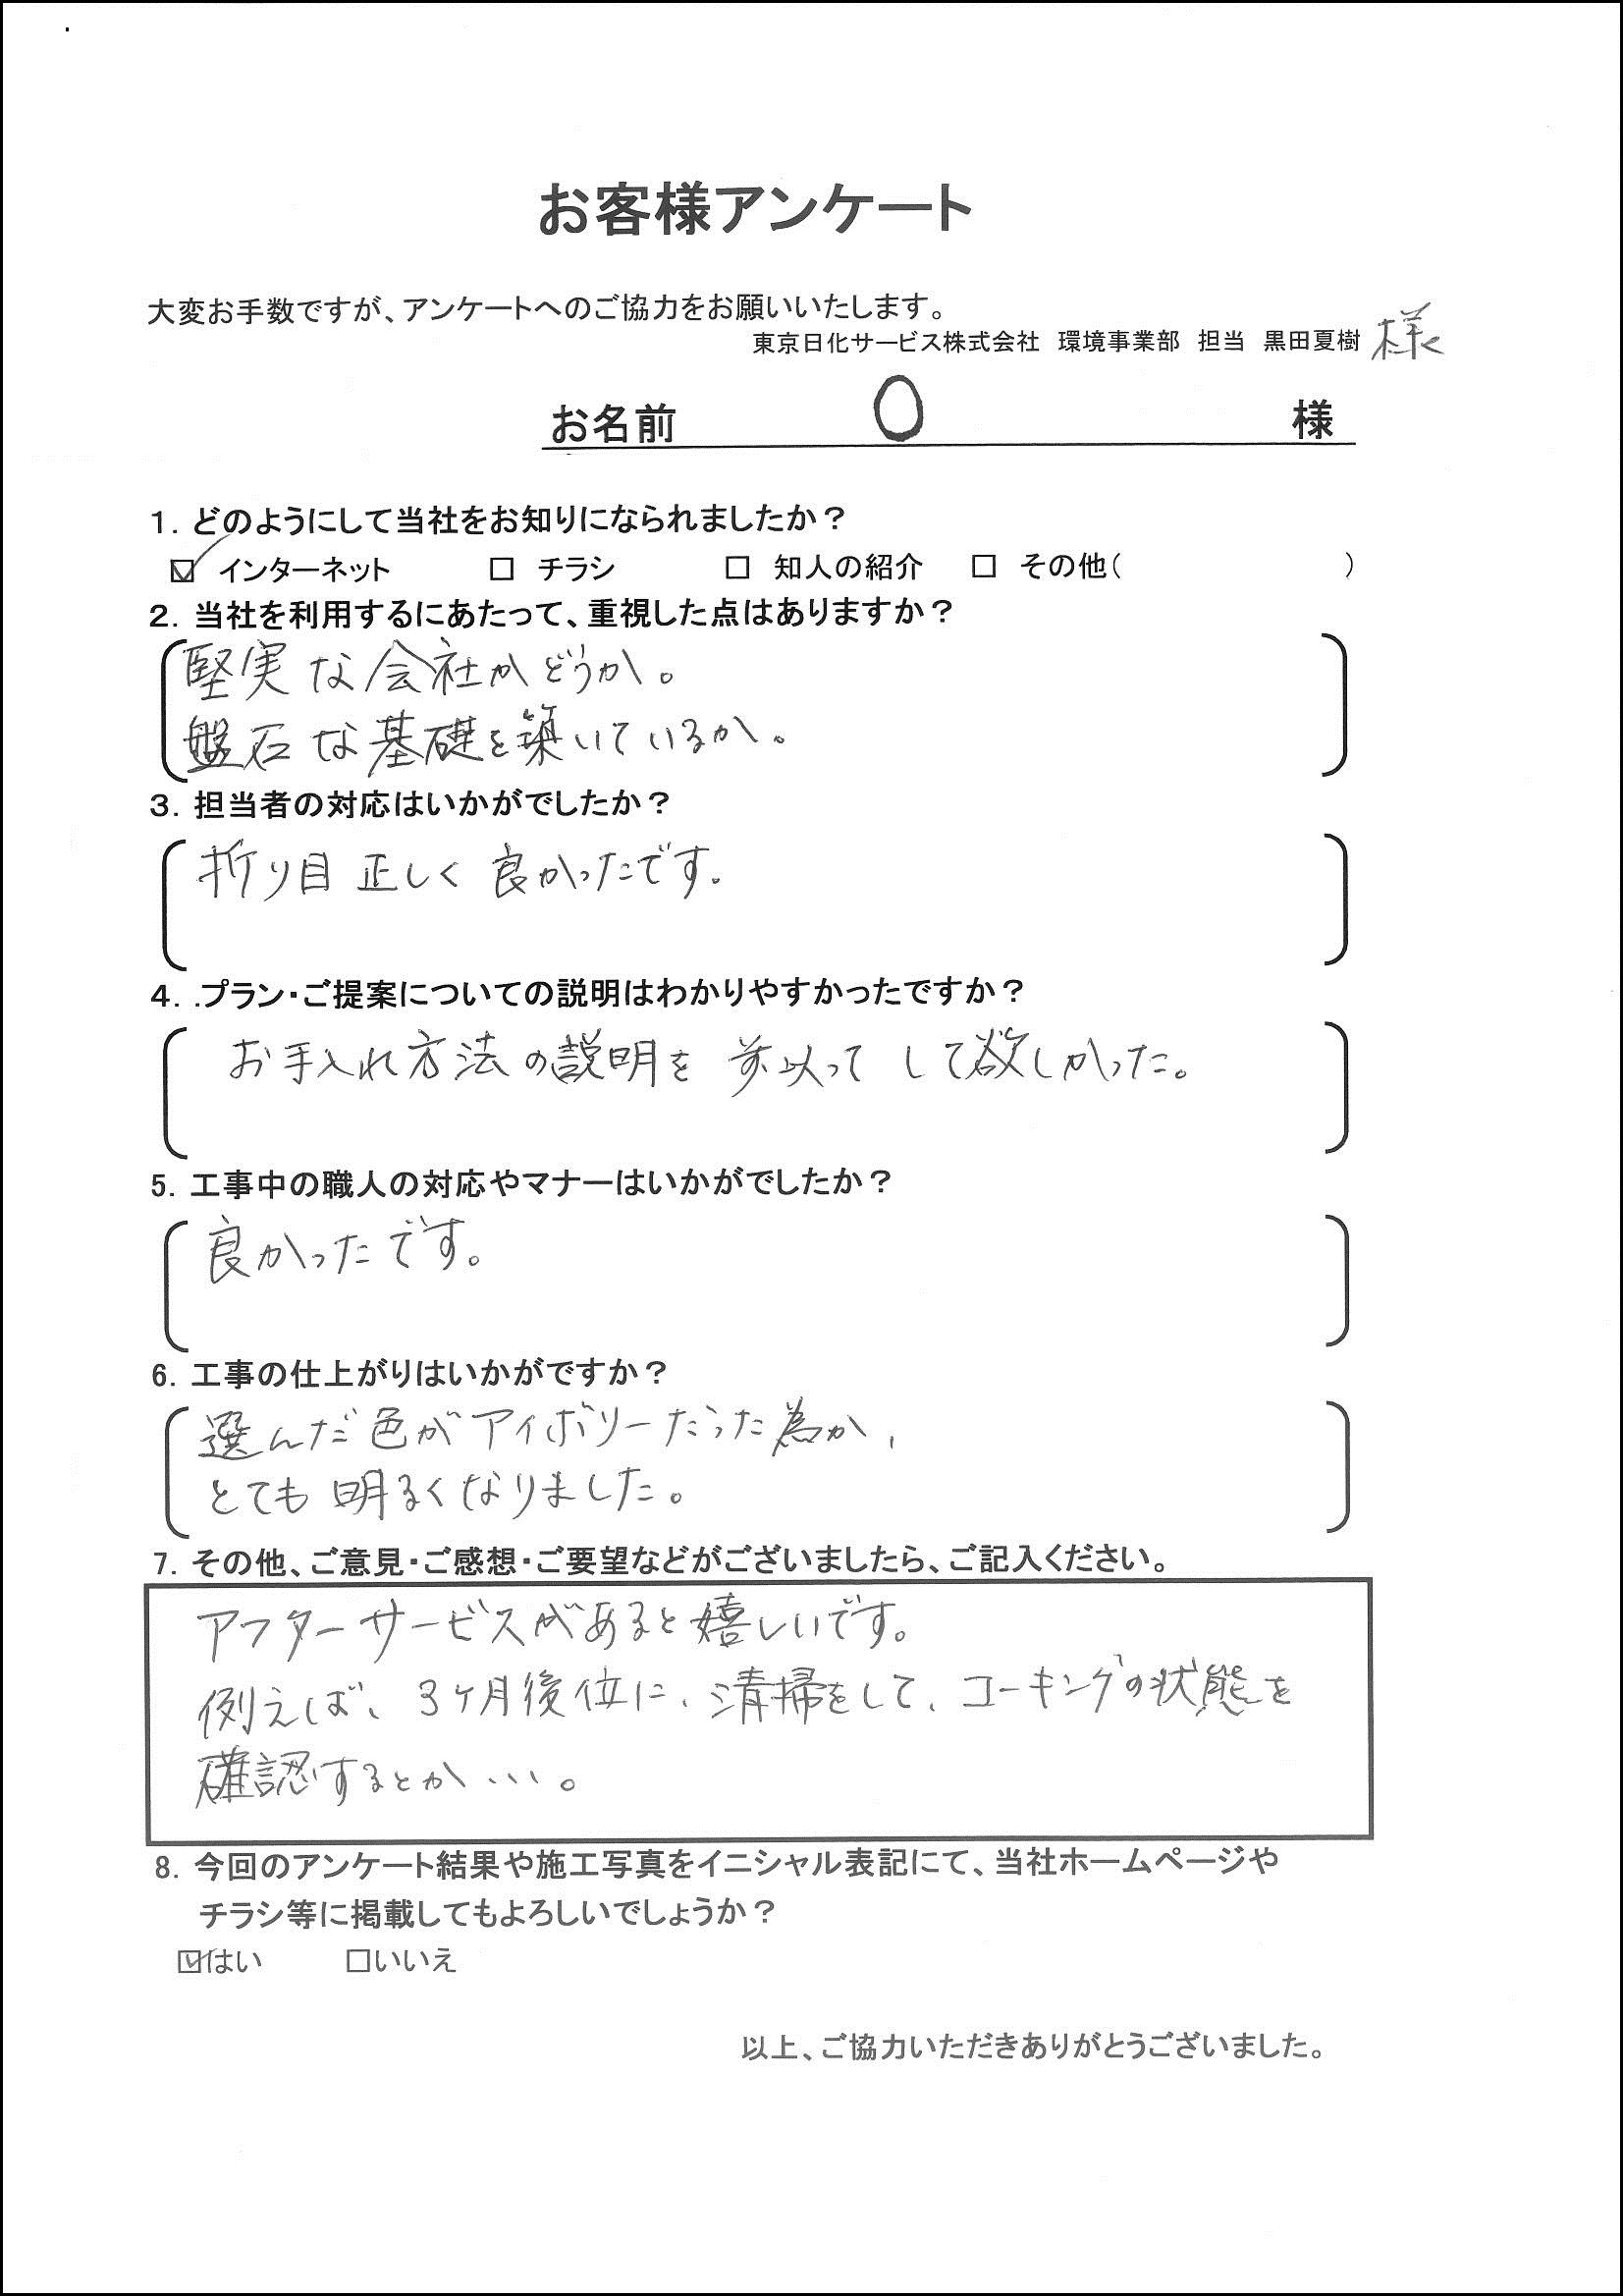 お客様アンケート
大変お手数ですが、アンケートへのご協力をお願いいたします。
東京日化サービス株式会社 環境事業部 担当 黒田夏樹 様
お名前 O 様
1. どのようにして当社をお知りになられましたか？
☑ インターネット □ チラシ □ 知人の紹介 □ その他( )
2. 当社を利用するにあたって、重視した点はありますか？
堅実な会社かどうか。
盤石な基礎を築いているか。
3. 担当者の対応はいかがでしたか？
折り目正しく良かったです。
4. .プラン・ご提案についての説明はわかりやすかったですか？
お手入れ方法の説明を 前以って して欲しかった。
5. 工事中の職人の対応やマナーはいかがでしたか？
良かったです。
6. 工事の仕上がりはいかがですか？
選んだ色がアイボリーだった為か、
とても明るくなりました。
7. その他、ご意見・ご感想・ご要望などがございましたら、ご記入ください。
アフターサービスがあると嬉しいです。
例えば、3ヶ月後位に、清掃をして、コーキングの状態を
確認するとか…。
8. 今回のアンケート結果や施工写真をイニシャル表記にて、当社ホームページや
チラシ等に掲載してもよろしいでしょうか？
☑はい □いいえ
以上、ご協力いただきありがとうございました。